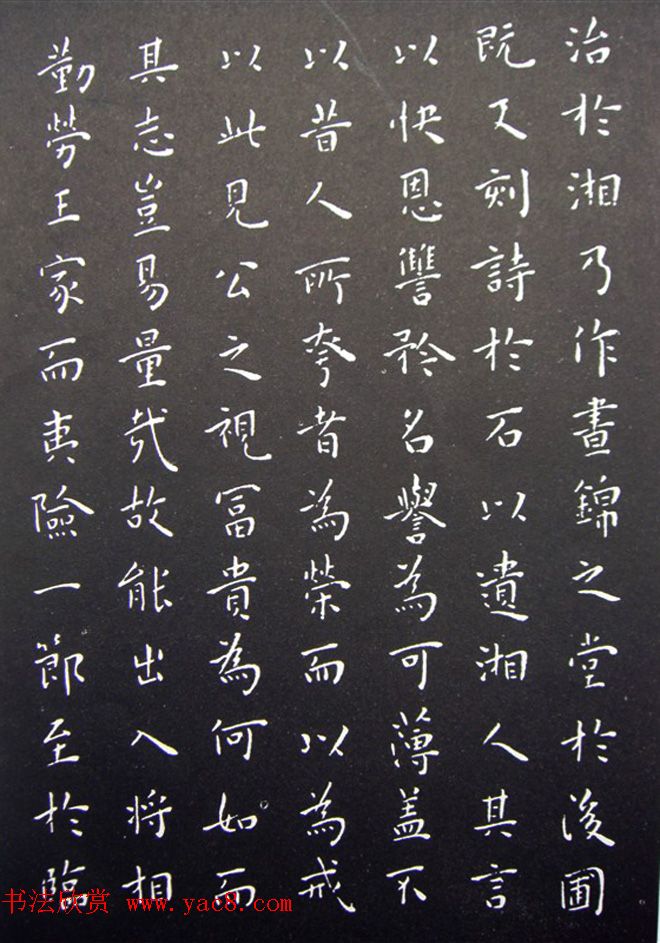 治於湘乃作晝錦之堂於後圃
既又刻詩於石以遺湘人其言
以快恩讐矜名譽為可薄盖不
以昔人所夸者為榮而以為戒
以此見公之視冨貴為何如而
其志豈易量哉故能出入将相
勤勞王家而夷險一節至於臨
书法欣赏 www.yac8.com